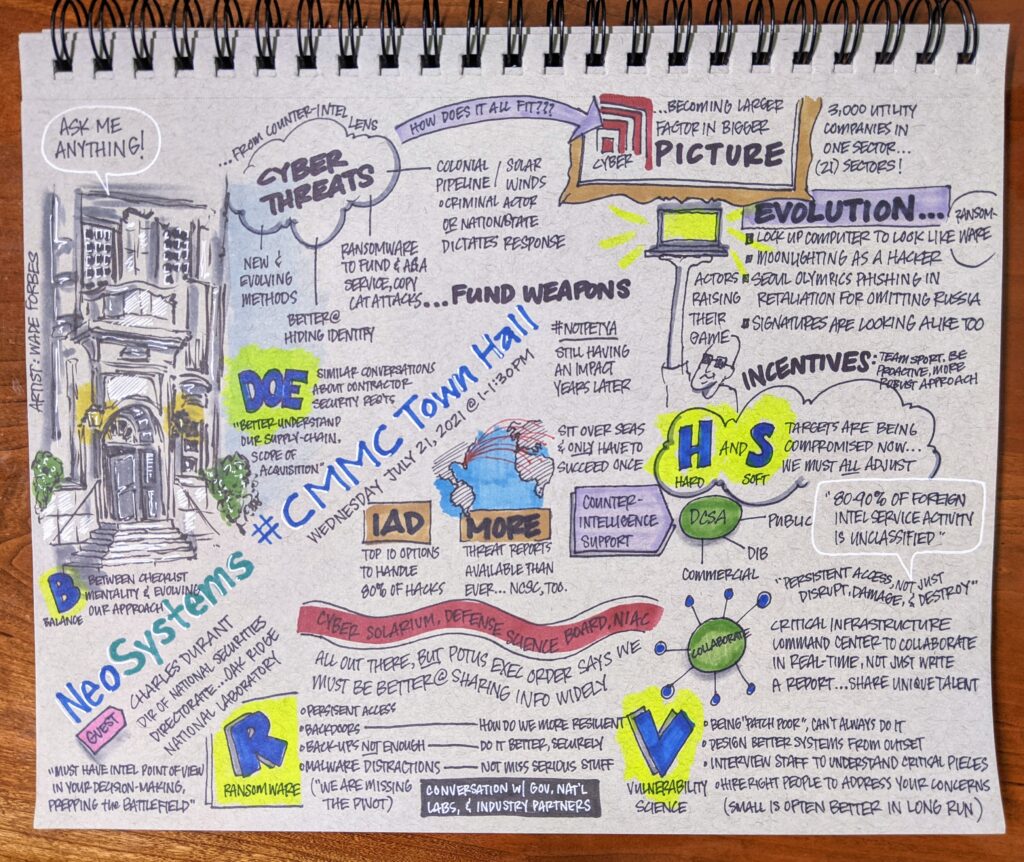 ASK ME
ANYTHING!
ARTIST: WADE FORBES
...FROM COUNTER-INTEL
LENS
CYBER
THREATS
NEW &
EVOLVING
METHODS
BETTER@
HIDING IDENTITY
RANSOMWARE
TO FUND & A&A
SERVICE, COPY
CAT ATTACKS
...FUND WEAPONS
COLONIAL / SOLAR
PIPELINE / WINDS
CRIMINAL ACTOR
OR NATION/STATE
DICTATES RESPONSE
HOW DOES IT ALL FIT???
CYBER
...BECOMING LARGER
FACTOR IN BIGGER
PICTURE
3,000 UTILITY
COMPANIES IN
ONE SECTOR...
(21) SECTORS!
EVOLUTION...
RANSOM-
LOCK UP COMPUTER TO LOOK LIKE WARE
MOONLIGHTING AS A HACKER
SEOUL OLYMPICS PHISHING IN
RETALIATION FOR OMITTING RUSSIA
SIGNATURES ARE LOOKING ALIKE TOO
ACTORS
RAISING
THEIR
GAME
#NOTPETYA
STILL HAVING
AN IMPACT
YEARS LATER
INCENTIVES: TEAM SPORT. BE
PROACTIVE, MORE
ROBUST APPROACH
DOE
SIMILAR CONVERSATIONS
ABOUT CONTRACTOR
SECURITY REQTS
"BETTER UNDERSTAND
OUR SUPPLY-CHAIN.
SCOPE OF
ACQUISITION"
#CMMC Town Hall
WEDNESDAY JULY 21, 2021 @ 1-1:30PM
SIT OVER SEAS
& ONLY HAVE TO
SUCCEED ONCE
H AND S
HARD SOFT
TARGETS ARE BEING
COMPROMISED NOW...
WE MUST ALL ADJUST
IAD
TOP 10 OPTIONS
TO HANDLE
80% OF HACKS
MORE
THREAT REPORTS
AVAILABLE THAN
EVER... NCSC, TOO.
COUNTER-
INTELLIGENCE
SUPPORT
DCSA
PUBLIC
DIB
COMMERCIAL
"80-90% OF FOREIGN
INTEL SERVICE ACTIVITY
IS UNCLASSIFIED"
"PERSISTENT ACCESS, NOT JUST
DISRUPT, DAMAGE, & DESTROY"
B
BALANCE
BETWEEN CHECKLIST
MENTALITY & EVOLVING
OUR APPROACH
NeoSystems
GUEST
CHARLES DURANT
DIR OF NATIONAL SECURITIES
DIRECTORATE...OAK RIDGE
NATIONAL LABORATORY
"MUST HAVE INTEL POINT OF VIEW
IN YOUR DECISION-MAKING,
PREPPING the BATTLEFIELD"
CYBER SOLARIUM, DEFENSE SCIENCE BOARD, NIAC
ALL OUT THERE, BUT POTUS EXEC ORDER SAYS WE
MUST BE BETTER@ SHARING INFO WIDELY
COLLABORATE
CRITICAL INFRASTRUCTURE
COMMAND CENTER TO COLLABORATE
IN REAL-TIME, NOT JUST WRITE
A REPORT...SHARE UNIQUE TALENT
R
RANSOMWARE
PERSISENT ACCESS
BACKDOORS HOW DO WE MORE RESILIENT
BACK-UPS NOT ENOUGH DO IT BETTER, SECURELY
MALWARE DISTRACTIONS NOT MISS SERIOUS STUFF
("WE ARE MISSING
THE PIVOT")
CONVERSATION W/ GOV, NAT'L
LABS, & INDUSTRY PARTNERS
V
VULNERABILITY
SCIENCE
BEING "PATCH POOR", CAN'T ALWAYS DO IT
DESIGN BETTER SYSTEMS FROM OUTSET
INTERVIEW STAFF TO UNDERSTAND CRITICAL PIECES
HIRE RIGHT PEOPLE TO ADDRESS YOUR CONCERNS
(SMALL IS OFTEN BETTER IN LONG RUN)